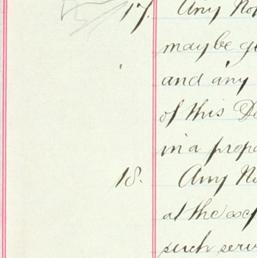 17. Any No
may be g
and any
of this D
in a prope
18. Any No
at the exp
such serv